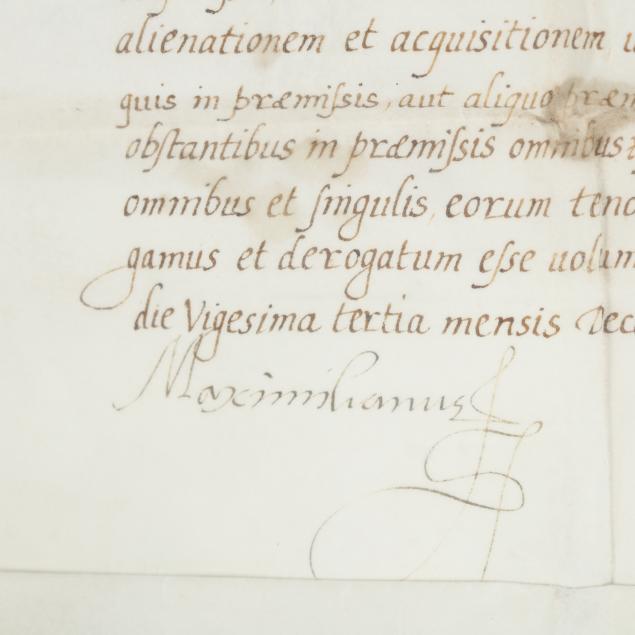 alienationem et acquisitionem
quis in præmißsis, aut aliquo præm
obstantibus in præmißsis omnibus
omnibus et singulis, eorum teno
gamus et derogatum eſse uolum
die Vigesima tertia mensis Dec
Maximilianus